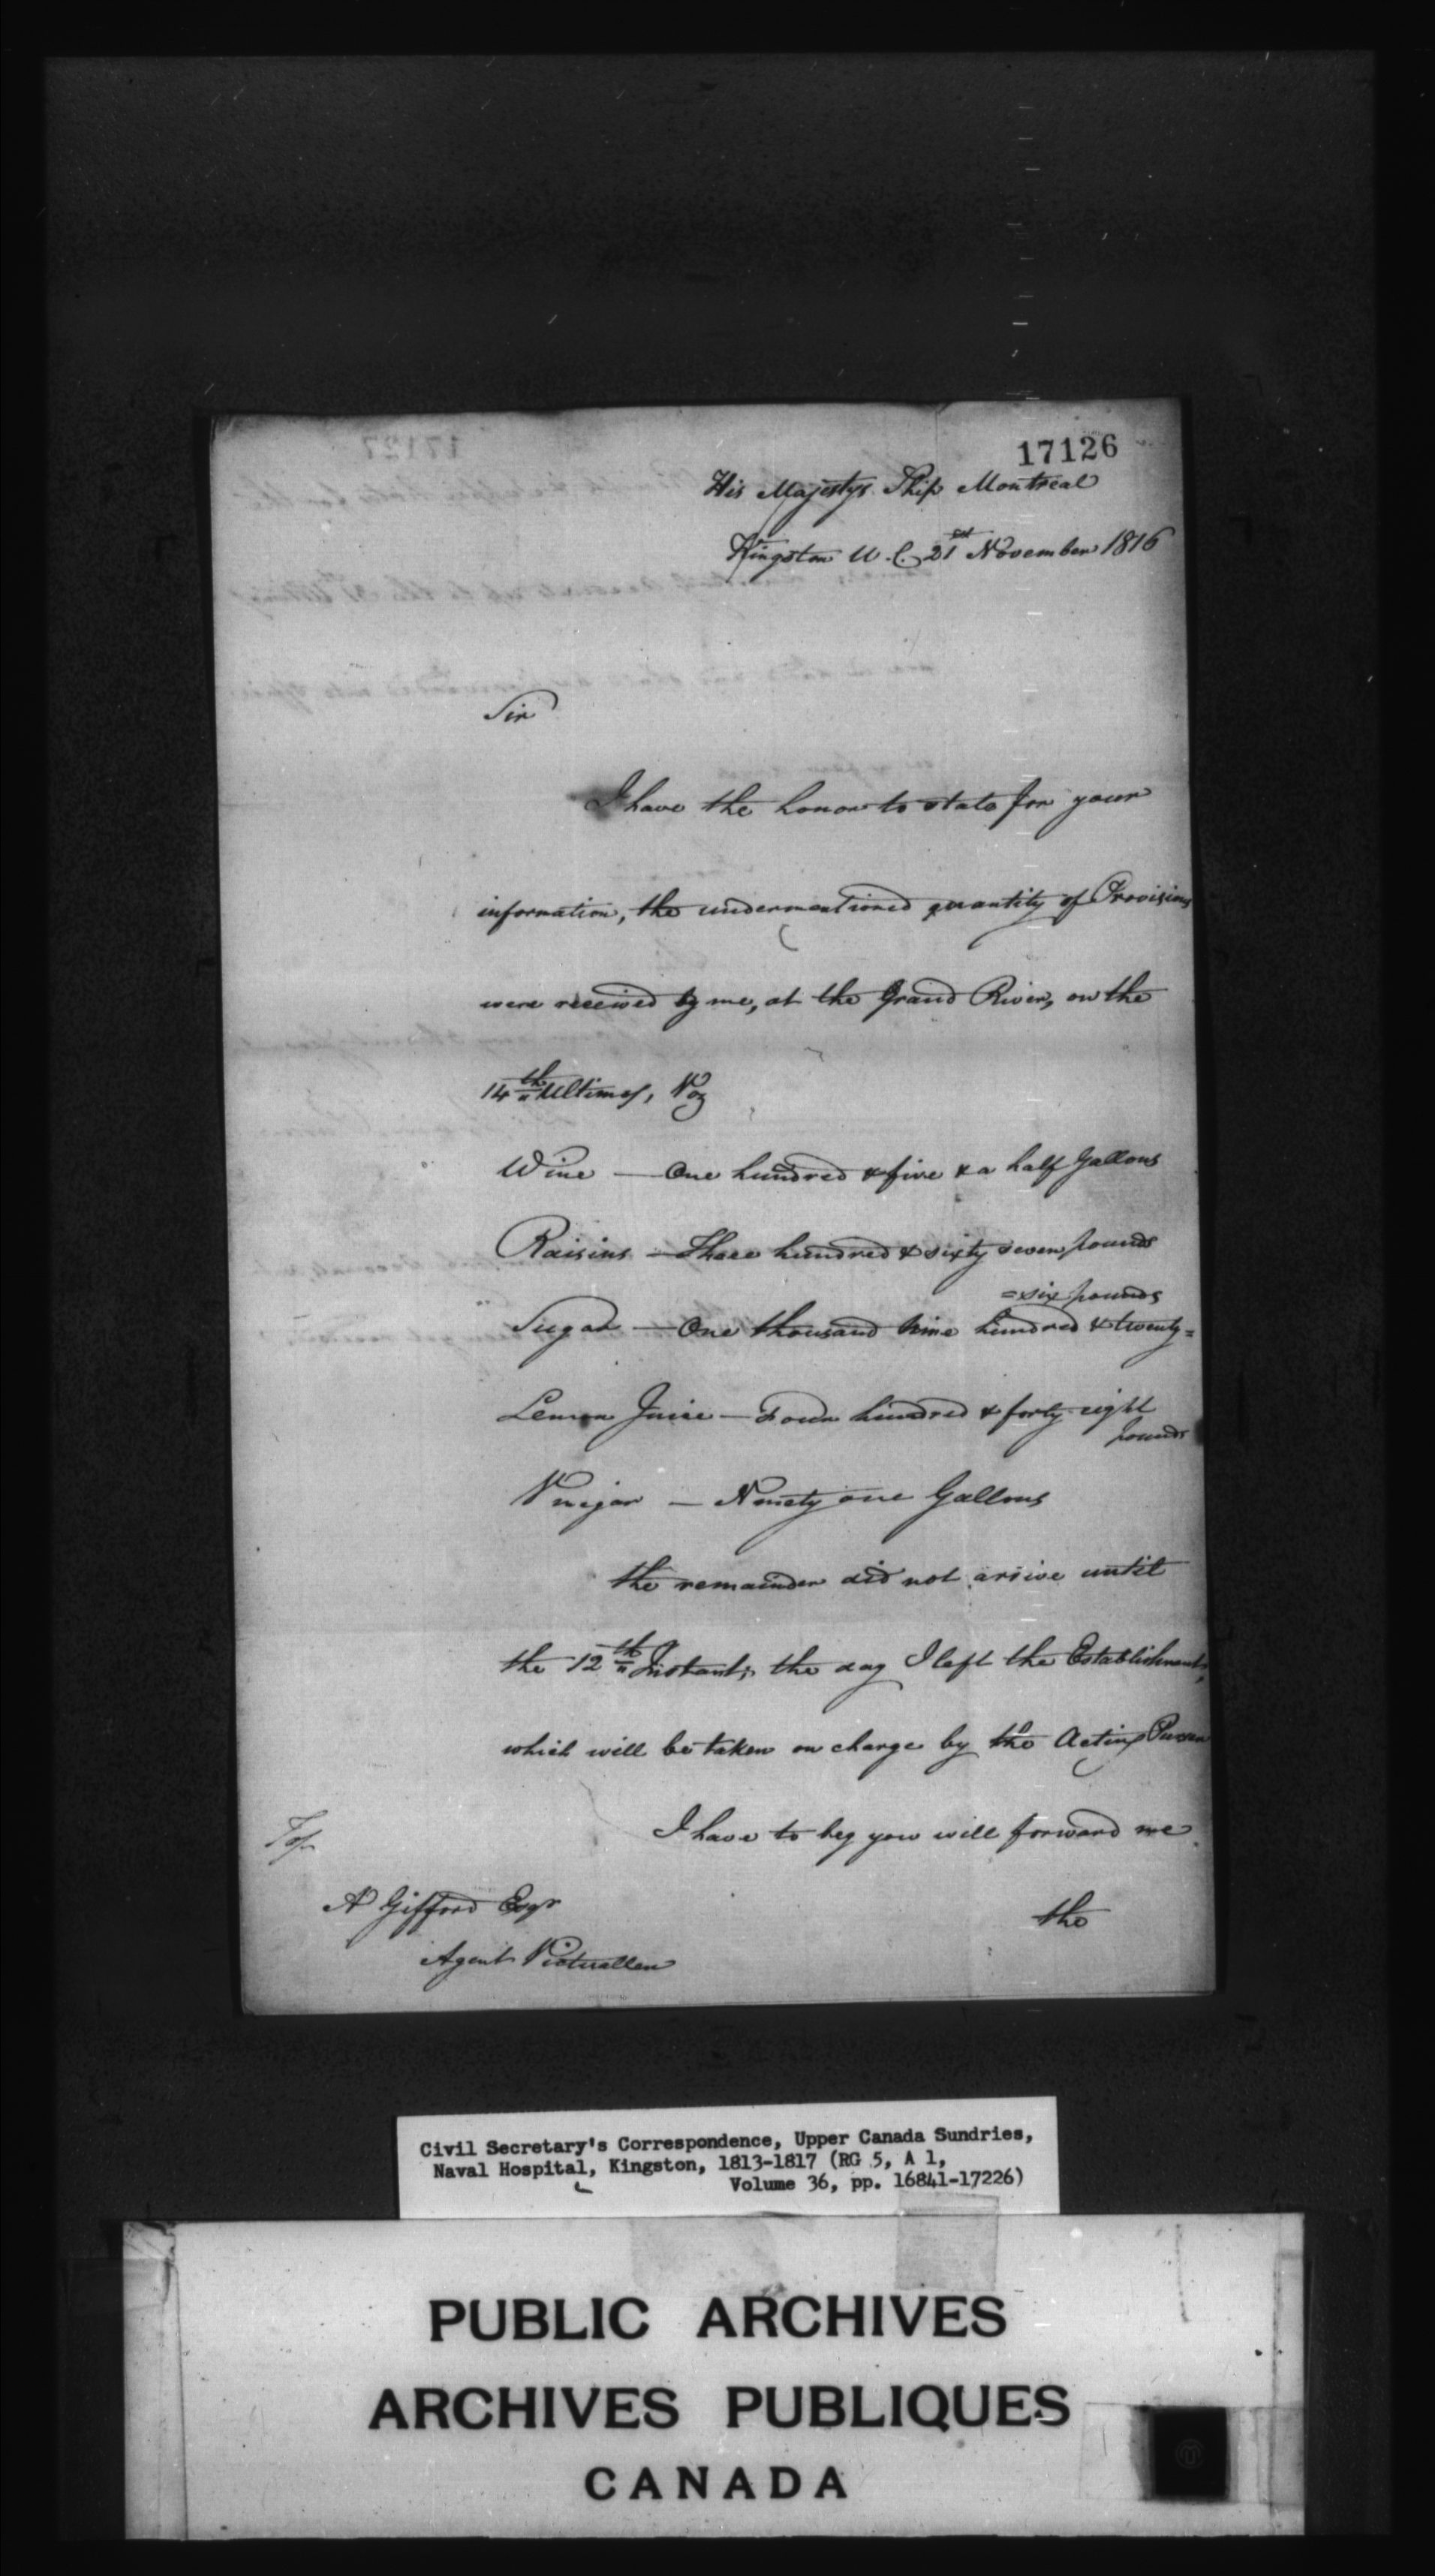 17126
His Majestys Ship Montreal
Kingston U.C. 21st November 1816
Sir
I have the honor to state for your
information, the undermentioned quantity of Provisions
were received by me, at the Grand River, on the
14th Ultimo, Viz
Wine — One hundred & five & a half Gallons
Raisins — Three hundred & sixty seven pounds
= six pounds
Sugar — One thousand Nine hundred & twenty =
Lemon Juice — Four hundred & forty eight
pounds
Vinegar — Ninety one Gallons
the remainder did not arrive until
the 12th Instant; the day I left the Establishment,
which will be taken on charge by the Acting Purser
I have to beg you will forward me
To
A Gifford Esqr
the
Agent Victualler
Civil Secretary's Correspondence, Upper Canada Sundries,
Naval Hospital, Kingston, 1813-1817 (RG 5, A 1,
Volume 36, pp. 16841-17226)
PUBLIC ARCHIVES
ARCHIVES PUBLIQUES
CANADA